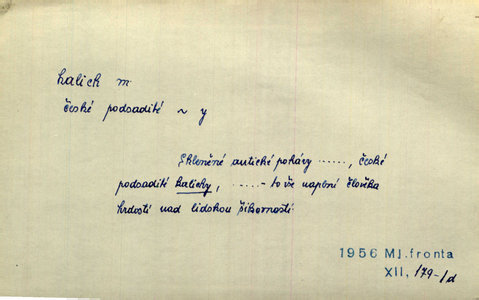 kalich m.
české podsadité ~ y
Skleněné antické poháry ......, české
podsadité kalichy, ...... - to vše naplní člověka
hrdostí nad lidskou šikovností.
1956 Ml.fronta
XII, 179-/d